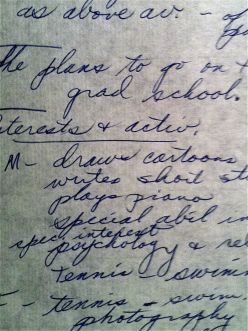 as above av. – of
The plans to go on t
grad school.
terests & activ.
M – draws cartoons
writes short st
plays piano
special abil in
spec interest
psychology & rel
tennis – swimm
– tennis – swim
photography